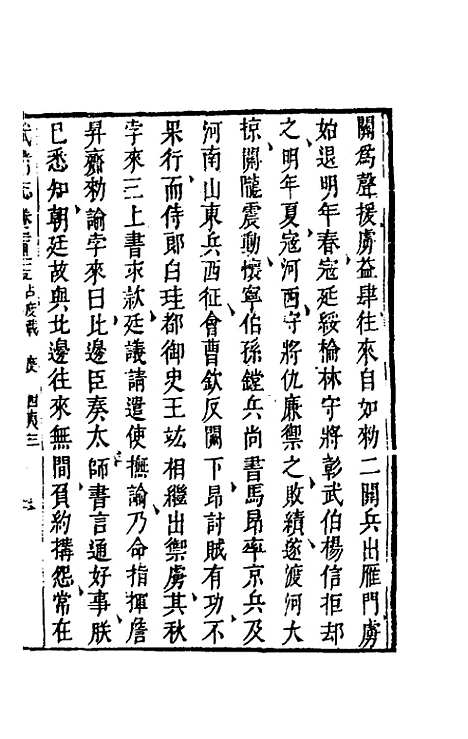 關爲聲援虜益肆往來自如勑二關兵出雁門虜
始退明年春寇延綏榆林守將彰武伯楊信拒却
之明年夏寇河西守將仇廉禦之敗績遂渡河大
掠關隴震動懷寧伯孫鏜兵尚書馬昂率京兵及
河南山東兵西征會曹欽反闕下昂討賊有功不
果行而侍郎白珪都御史王竑相繼出禦虜其秋
孛來三上書求款廷議請遣使撫諭乃命指揮詹
昇齎勑諭孛來曰比邊臣奏太師書言通好事朕
已悉知朝廷故與北邊往來無間負約搆怨常在
武備志卷 占度載 度 四夷三